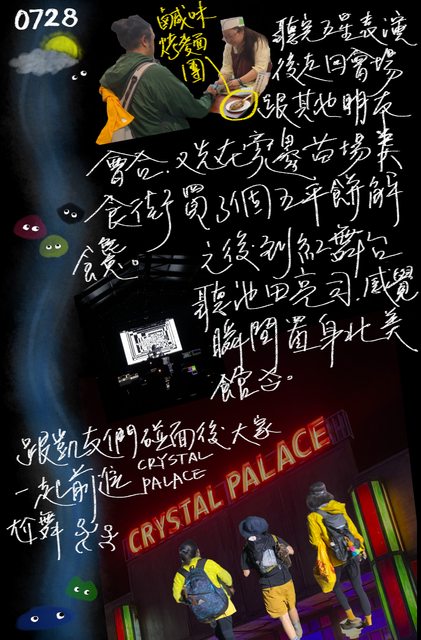 0728
鹹味
烤麵
團
聽完五星表演
後走回會場
跟其他朋友
會合.又先在旁邊苗場美
食街買了個五平餅解
饞。
之後到紅舞台
聽池田亮司.感覺
瞬間置身北美
館合。
跟凱友們碰面後.大家
一起前進 CRYSTAL PALACE
扭舞
CRYSTAL PALACE